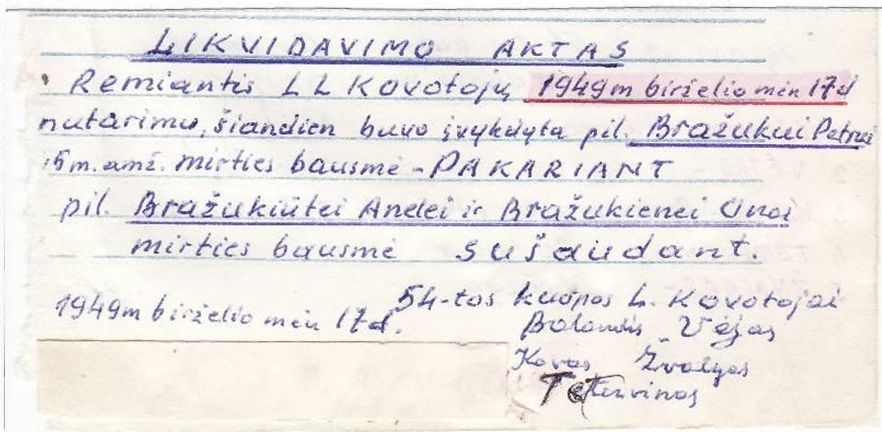 LIKVIDAVIMO AKTAS
Remiantis LLKovotojų 1949m birželio mėn 17d
nutarimu, šiandien buvo įvykdyta pil. Bražukui Petrui
16 m. amž. mirties bausmė - PAKARIANT
pil. Bražukiūtei Andei ir Bražukienei Onai
mirties bausmė sušaudant.
54-tos kuopos L. Kovotojai
1949m birželio mėn 17d.
Balandis Vėjas
Kovas Žvalgas
Tetervinas